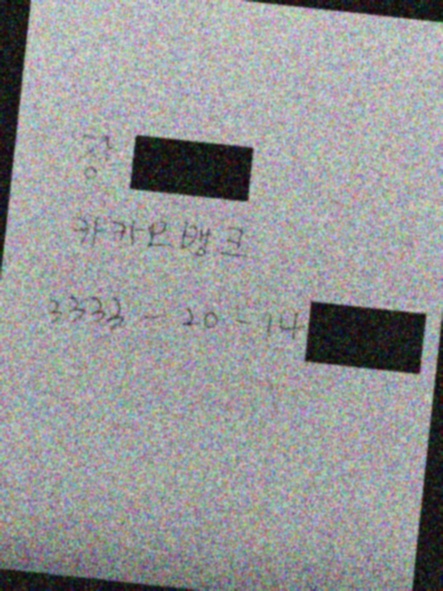 장
카카오뱅크
3333 - 20 - 14